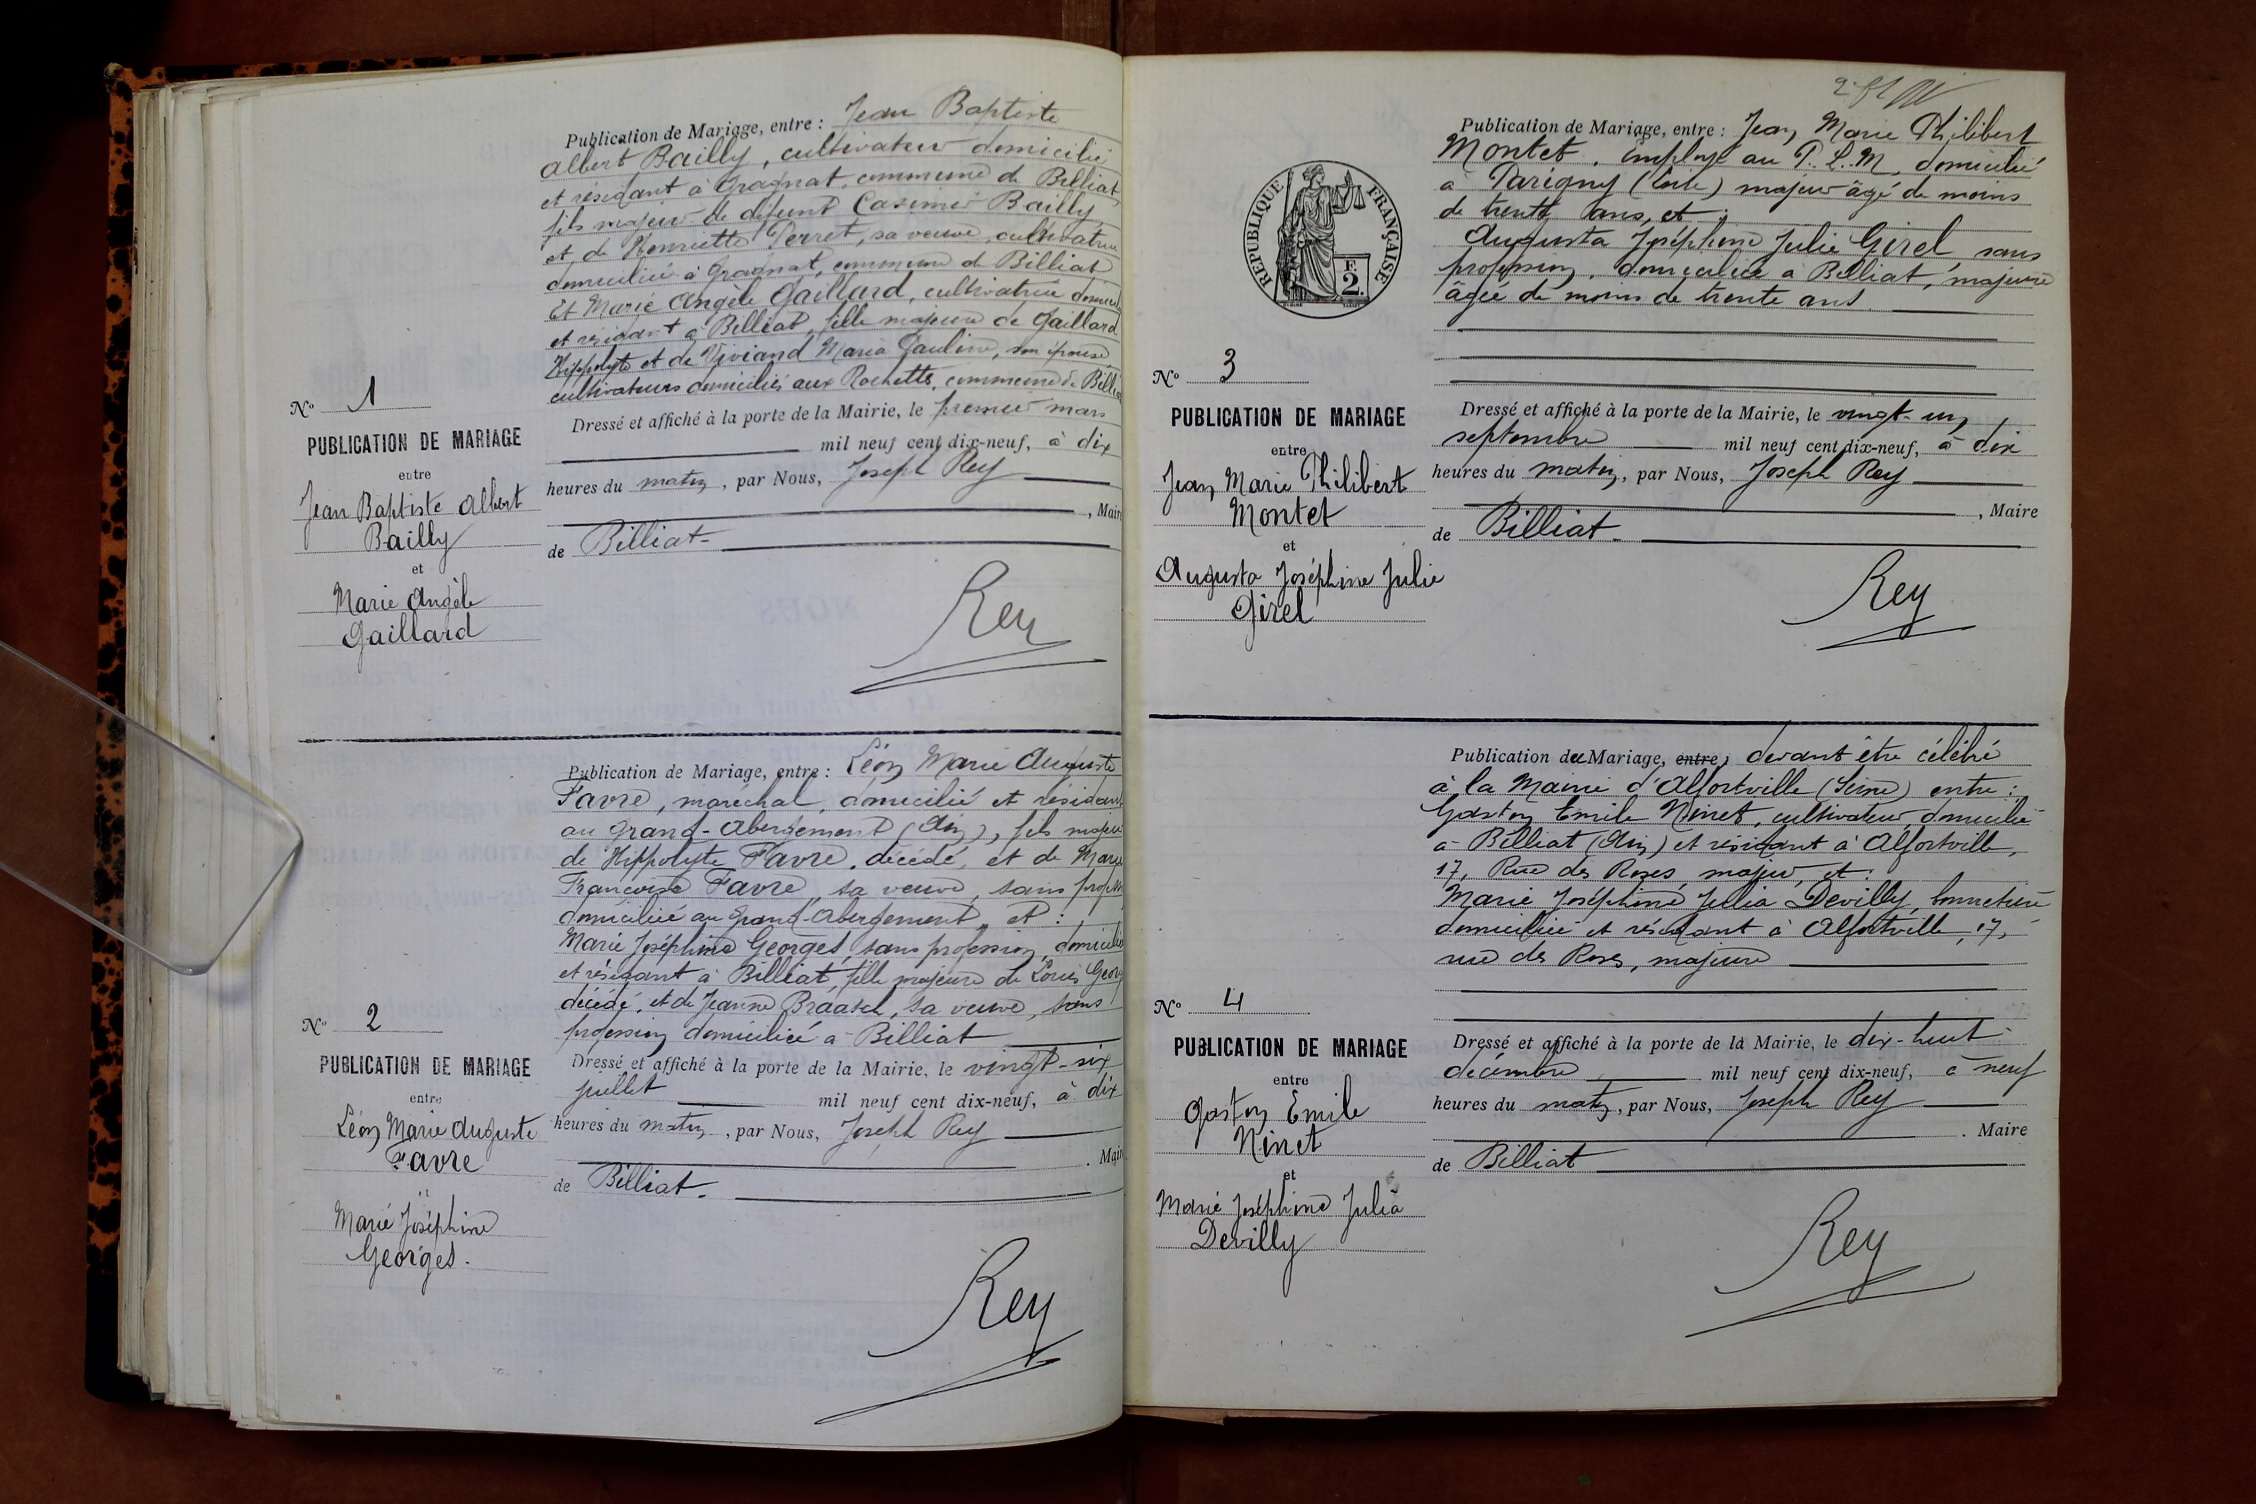 Publication de Mariage, entre : Jean Baptiste
Albert Bailly, cultivateur domicilié
et résidant à Gragnat, commune de Billiat,
fils majeur de défunt Casimir Bailly
et de Henriette Perret, sa veuve, cultivatrice
domiciliée à Gragnat, commune de Billiat
Et Marie Angèle Gaillard, cultivatrice
et résidant à Billiat, fille majeure de Gaillard
Hippolyte et de Viviand Maria Pauline, son épouse
cultivateurs domiciliés aux Rochette, commune de
Dressé et affiché à la porte de la Mairie, le premier mars
mil neuf cent dix-neuf, à dix
heures du matin, par Nous, Joseph Rey
, Maire
de Billiat
Rey
N° 1
PUBLICATION DE MARIAGE
entre
Jean Baptiste Albert
Bailly
et
Marie Angèle
Gaillard
Publication de Mariage, entre : Léon Marie Auguste
Favre, maréchal, domicilié et résidant
au Grand-Abergement (Ain), fils majeur
de Hippolyte Favre, décédé, et de Marie
Françoise Favre, sa veuve, sans
domiciliée au Grand-Abergement, et :
Marie Joséphine Georges, sans profession, domiciliée
et résidant à Billiat, fille majeure de Louis
décédé, et de Jeanne Braasch, sa veuve, sans
profession domiciliée à Billiat
Dressé et affiché à la porte de la Mairie, le vingt-six
juillet mil neuf cent dix-neuf, à dix
heures du matin, par Nous, Joseph Rey
, Maire
de Billiat
Rey
N° 2
PUBLICATION DE MARIAGE
entre
Léon Marie Auguste
Favre
Marie Joséphine
Georges.
Publication de Mariage, entre : Jean Marie Philibert
Montet, employé au P.L.M, domicilié
à Parigny (Loire) majeur âgé de moins
de trente ans, et :
Augusta Joséphine Julie Girel, sans
profession, domiciliée à Billiat, majeure
âgée de moins de trente ans
Dressé et affiché à la porte de la Mairie, le vingt-un
septembre mil neuf cent dix-neuf, à dix
heures du matin, par Nous, Joseph Rey
, Maire
de Billiat
Rey
REPUBLIQUE FRANÇAISE
F.
2.
N° 3
PUBLICATION DE MARIAGE
entre
Jean Marie Philibert
Montet
et
Augusta Joséphine Julie
Girel
Publication de Mariage, entre : devant être célébré
à la Mairie d'Alfortville (Seine) entre :
Gaston Emile Ninet, cultivateur, domicilié
à Billiat (Ain) et résidant à Alfortville,
17, Rue des Roses, majeur, et :
Marie Joséphine Julia Devilly, bonnetière
domiciliée et résidant à Alfortville, 17,
rue des Roses, majeure
Dressé et affiché à la porte de la Mairie, le dix-huit
décembre mil neuf cent dix-neuf, à neuf
heures du matin, par Nous, Joseph Rey
, Maire
de Billiat
Rey
N° 4
PUBLICATION DE MARIAGE
entre
Gaston Emile
Ninet
et
Marie Joséphine Julia
Devilly